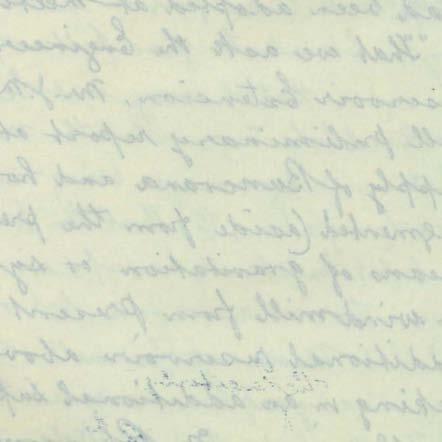 been adopted at
"That we ask the Engineer
servoir Extension, Mr
ll preliminary report at
pply of Buncrana and
gmented (aside from the pre
eans of gravitation or sy
windmill from present
ditional reservoir above
king in an additional sup